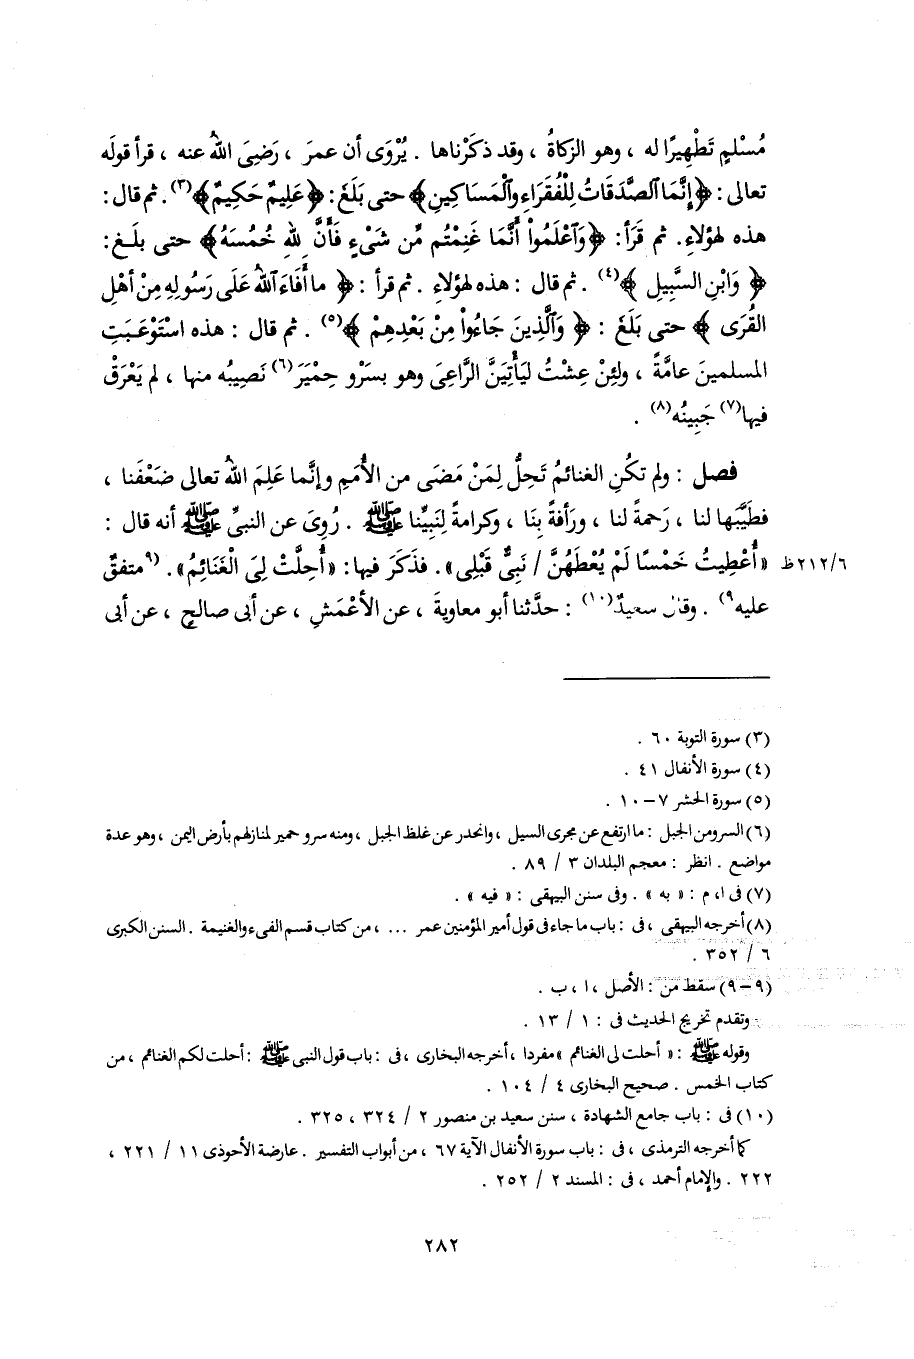 مُسْلمٍ تَطْهِيرًا له ، وهو الزكاةُ ، وقد ذكَرْناها . يُرْوَى أن عمرَ ، رَضِىَ اللهُ عنه ، قرأ قولَه
تعالى : ﴿ إِنَّمَا ٱلصَّدَقَاتُ لِلْفُقَرَاءِ وَٱلْمَسَاكِينِ ﴾ حتى بَلَغَ : ﴿ عَلِيمٌ حَكِيمٌ ﴾(٣) . ثم قال :
هذه لهؤلاءِ . ثم قَرَأَ : ﴿ وَٱعْلَمُواْ أَنَّمَا غَنِمْتُم مِّن شَىْءٍ فَأَنَّ لِلهِ خُمُسَهُ ﴾ حتى بلَغ :
﴿ وَابْنِ السَّبِيلِ ﴾(٤) . ثم قال : هذه لهؤلاءِ . ثم قرأ : ﴿ ما أَفَاءَ ٱللهُ عَلَى رَسُولِهِ مِنْ أهْلِ
القُرَى ﴾ حتى بَلَغَ : ﴿ وَٱلَّذِينَ جَاءُواْ مِنْ بَعْدِهِمْ ﴾(٥) . ثم قال : هذه اسْتَوْعَبَتِ
المسلمينَ عامَّةً ، ولئِنْ عِشْتُ ليَأْتِيَنَّ الرَّاعِىَ وهو بسَرْوِ حِمْيَرَ(٦) نَصِيبُه منها ، لم يَعْرَقْ
فيها(٧) جَبِينُه(٨) .
فصل : ولم تكُنِ الغنائمُ تَحِلُّ لِمَنْ مَضَى من الأُمَمِ وإنَّما عَلِمَ اللهُ تعالى ضَعْفَنا ،
فطَيَّبَها لنا ، رَحمةً لنا ، ورَأفةً بِنَا ، وكرامةً لِنَبِيِّنا ﷺ . رُوِىَ عن النبىِّ ﷺ أنه قال :
« أُعْطِيتُ خَمْسًا لَمْ يُعْطَهُنَّ / نَبِىٌّ قَبْلِى » . فذَكَرَ فيها : « أُحِلَّتْ لِىَ الْغَنَائِمُ » . (٩متفقٌ ٢١٢/٦ظ
عليه٩) . وقال سعيدٌ(١٠) : حدَّثنا أبو معاويةَ ، عن الأعْمَشِ ، عن أبى صالحٍ ، عن أبى
(٣) سورة التوبة ٦٠ .
(٤) سورة الأنفال ٤١ .
(٥) سورة الحشر ٧ – ١٠ .
(٦) السرو من الجبل : ما ارتفع عن مجرى السيل ، وانحدر عن غلظ الجبل ، ومنه سرو حمير لمنازلهم بأرض اليمن ، وهو عدة
مواضع . انظر : معجم البلدان ٣ / ٨٩ .
(٧) فى ا ، م : « به » . وفى سنن البيهقى : « فيه » .
(٨) أخرجه البيهقى ، فى : باب ما جاء فى قول أمير المؤمنين عمر ... ، من كتاب قسم الفىء والغنيمة . السنن الكبرى
٦ / ٣٥٢ .
(٩ – ٩) سقط من : الأصل ، ا ، ب .
وتقدم تخريج الحديث فى : ١ / ١٣ .
وقوله ﷺ : « أحلت لى الغنائم » مفردا ، أخرجه البخارى ، فى : باب قول النبى ﷺ : أحلت لكم الغنائم ، من
كتاب الخمس . صحيح البخارى ٤ / ١٠٤ .
(١٠) فى : باب جامع الشهادة ، سنن سعيد بن منصور ٢ / ٣٢٤ ، ٣٢٥ .
كما أخرجه الترمذى ، فى : باب سورة الأنفال الآية ٦٧ ، من أبواب التفسير . عارضة الأحوذى ١١ / ٢٢١ ،
٢٢٢ . والإمام أحمد ، فى : المسند ٢ / ٢٥٢ .
٢٨٢